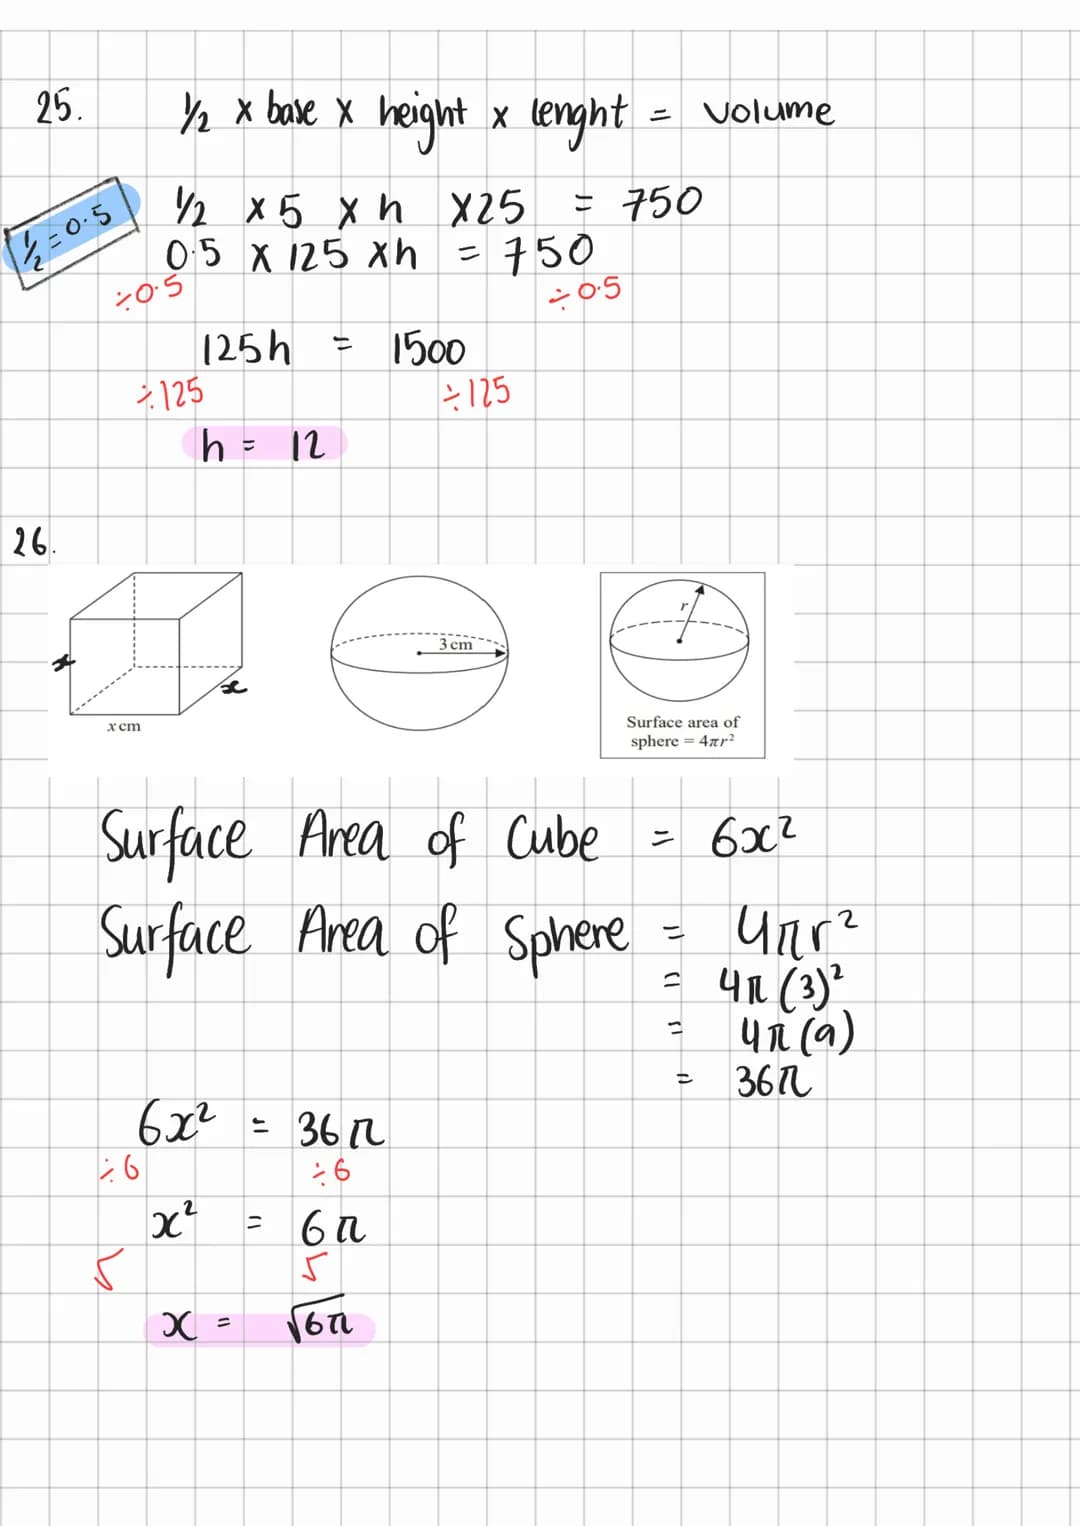 25. ½ x base x height x lenght = volume
½ = 0.5
½ x 5 x h x 25 = 750
0.5 x 125 x h = 750
÷0.5 ÷0.5
125h = 1500
÷125 ÷125
h = 12
26.
x
3 cm
r
x
x cm
Surface area of
sphere = 4πr²
Surface Area of Cube = 6x²
Surface Area of Sphere = 4πr²
= 4π(3)²
= 4π(9)
= 36π
6x² = 36π
÷6 ÷6
x² = 6π
√ √
x = √6π